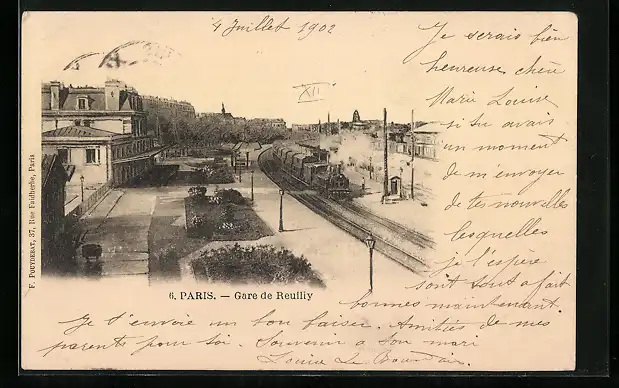 4 Juillet 1902
Je serais bien
heureuse, chère
Marie Louise
si tu avais
un moment
de m'envoyer
de tes nouvelles
lesquelles
j'espère
sont tout a fait
bonnes maintenant.
XII
F. POUYDEBAT, 37, Rue Faidherbe, Paris
6. PARIS. — Gare de Reuilly
Je t'envoie un bon baiser. Amitiés de mes
parents pour toi. Souvenir a ton mari
Louise Le